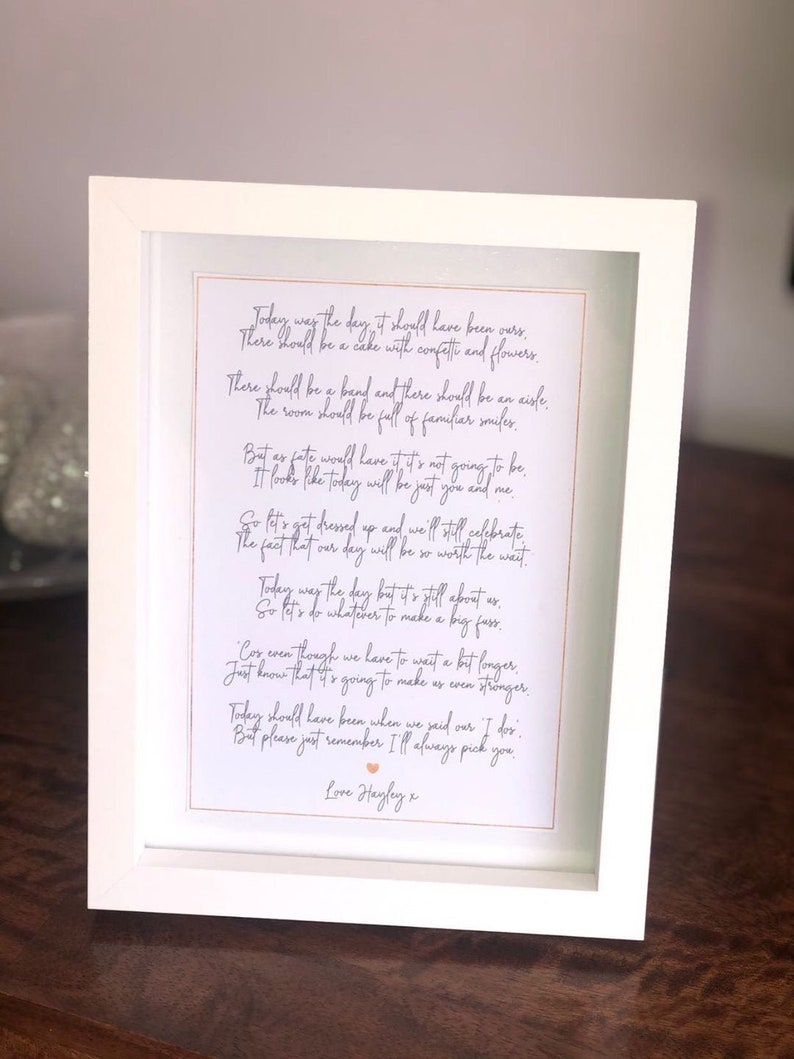 Today was the day it should have been ours,
There should be a cake with confetti and flowers.
There should be a band and there should be an aisle,
The room should be full of familiar smiles.
But as fate would have it it's not going to be,
It looks like today will be just you and me.
So let's get dressed up and we'll still celebrate,
The fact that our day will be so worth the wait.
Today was the day but it's still about us,
So let's do whatever to make a big fuss.
'Cos even though we have to wait a bit longer,
Just know that it's going to make us even stronger.
Today should have been when we said our 'I dos',
But please just remember I'll always pick you.
Love Hayley x